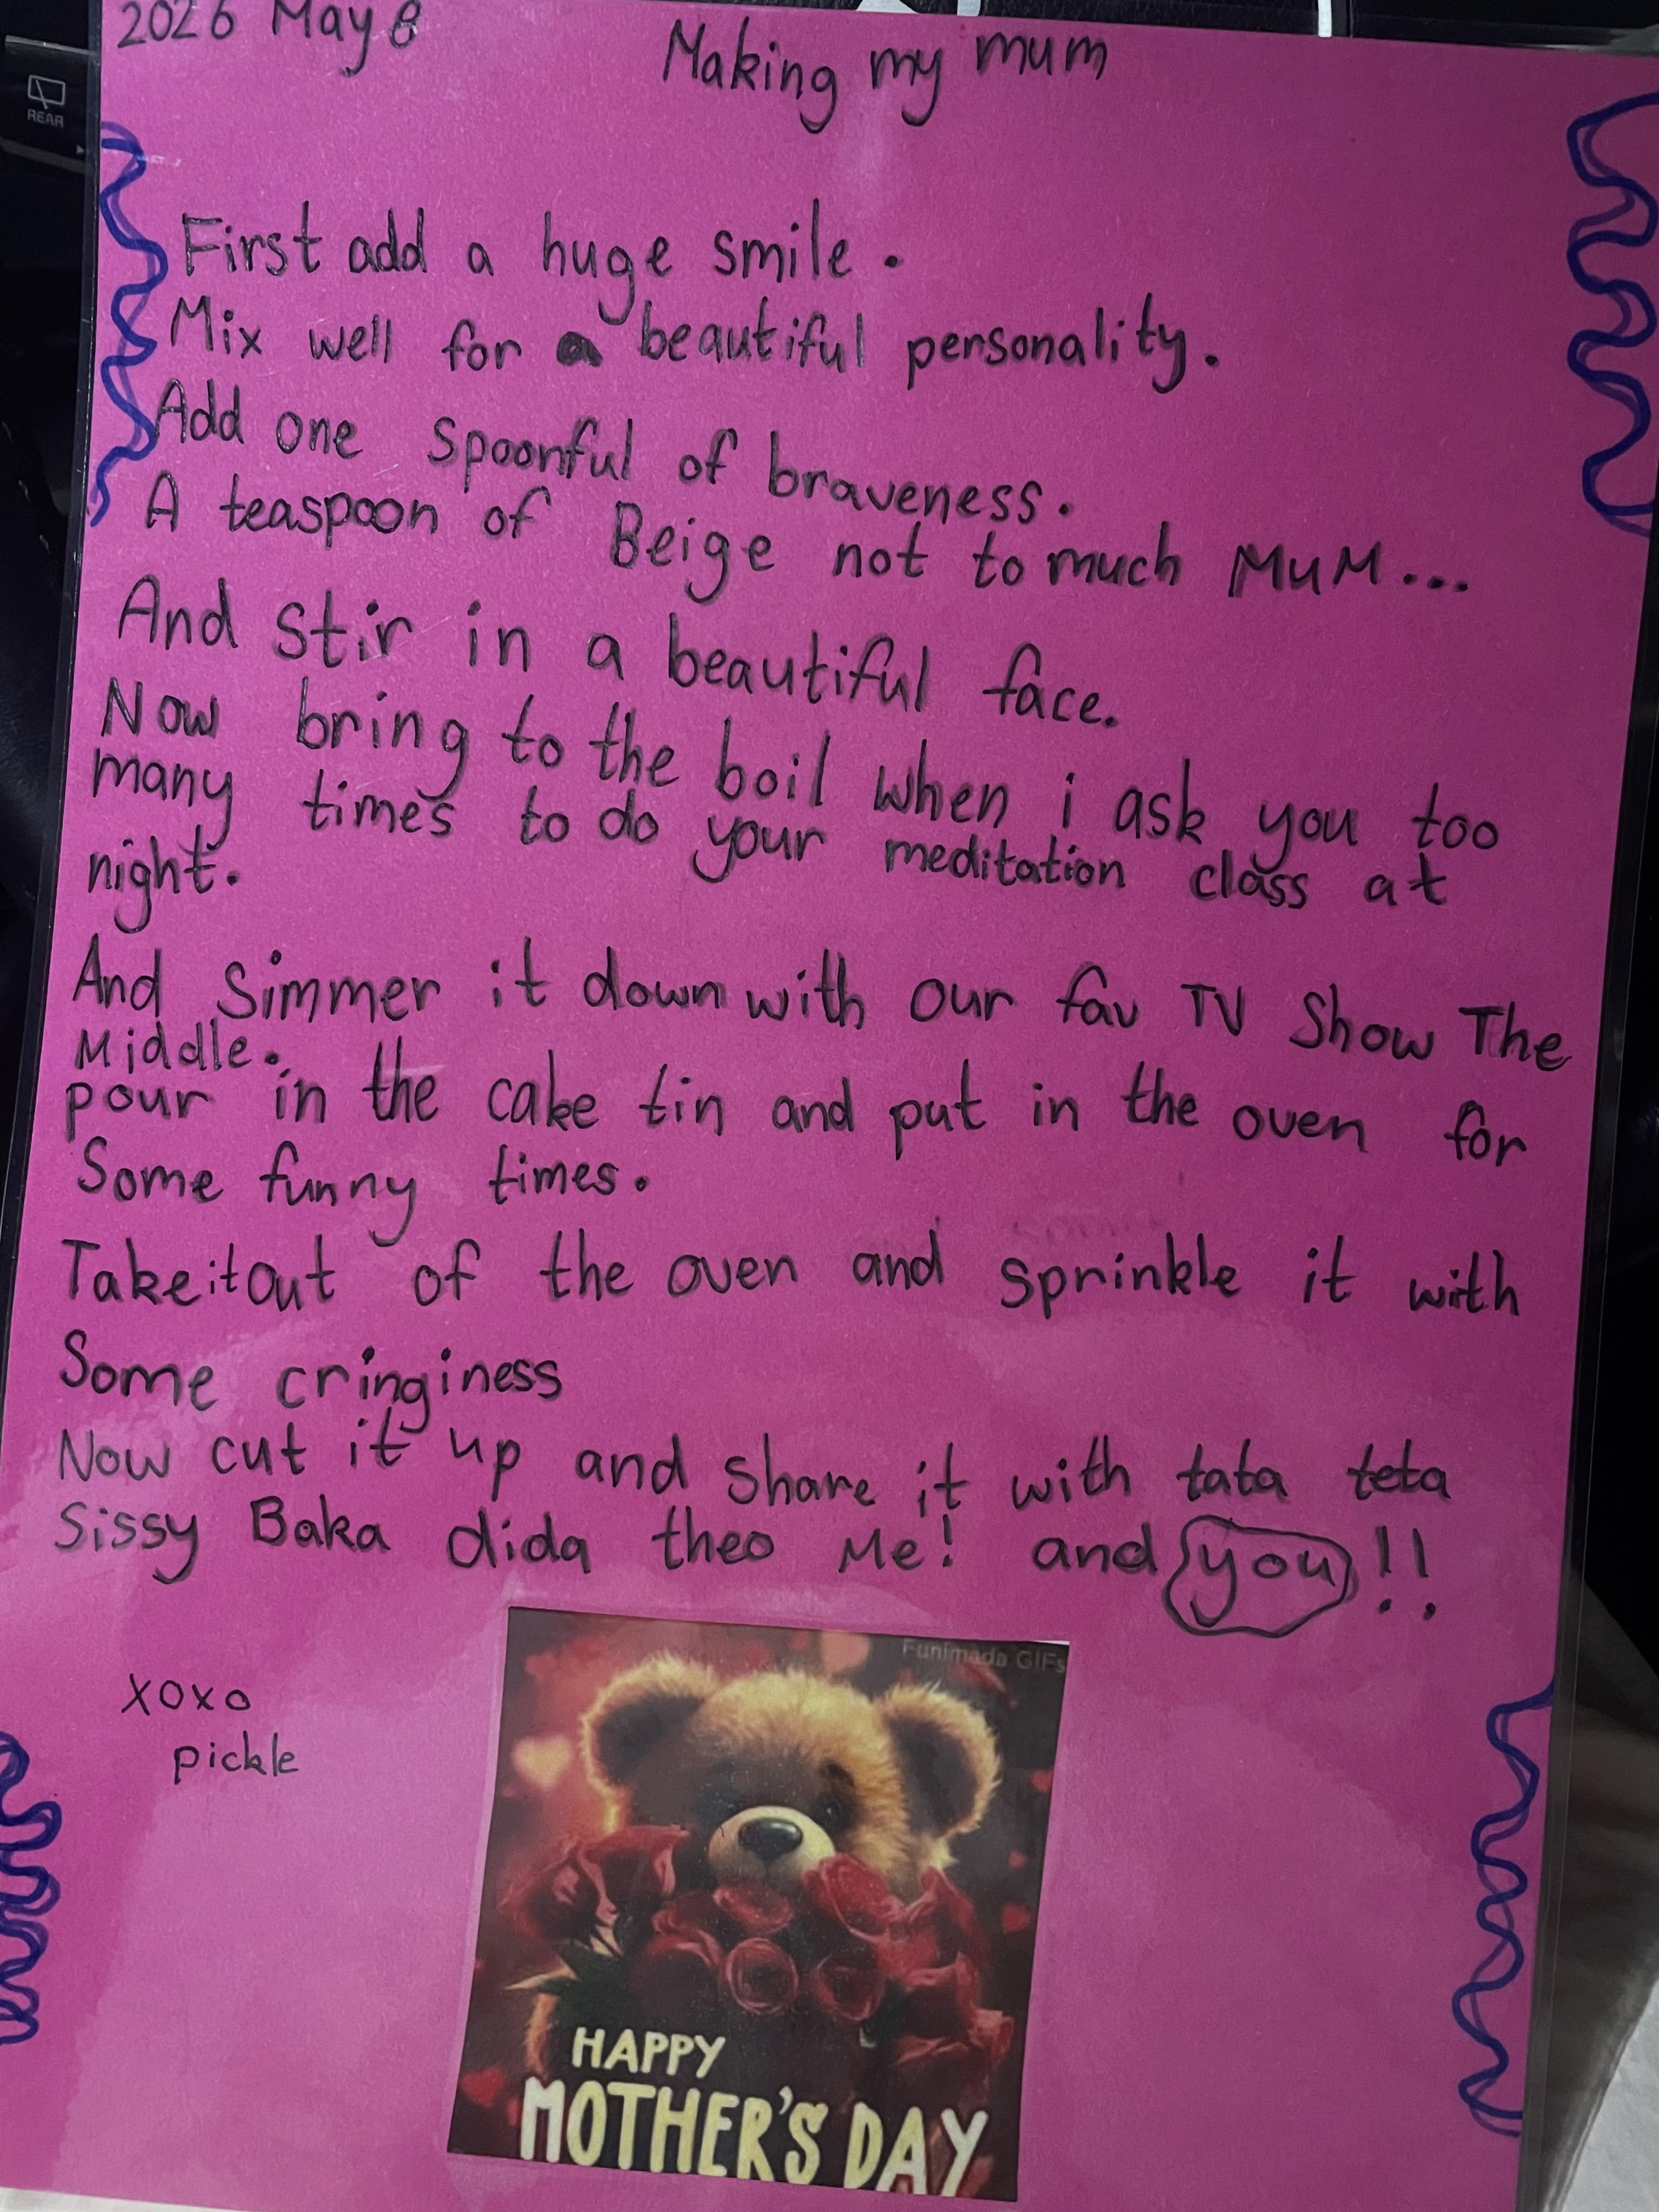 2026 May 8
Making my mum
REAR
First add a huge smile.
Mix well for a beautiful personality.
Add one spoonful of braveness.
A teaspoon of Beige not to much MuM...
And stir in a beautiful face.
Now bring to the boil when i ask you too
many times to do your meditation class at
night.
And Simmer it down with our fav TV Show The
Middle.
pour in the cake tin and put in the oven for
Some funny times.
Take it out of the oven and sprinkle it with
Some cringiness
Now cut it up and share it with tata teta
Sissy Baka dida theo Me! and you!!
xoxo
pickle
Funimada GIFs
HAPPY
MOTHER'S DAY